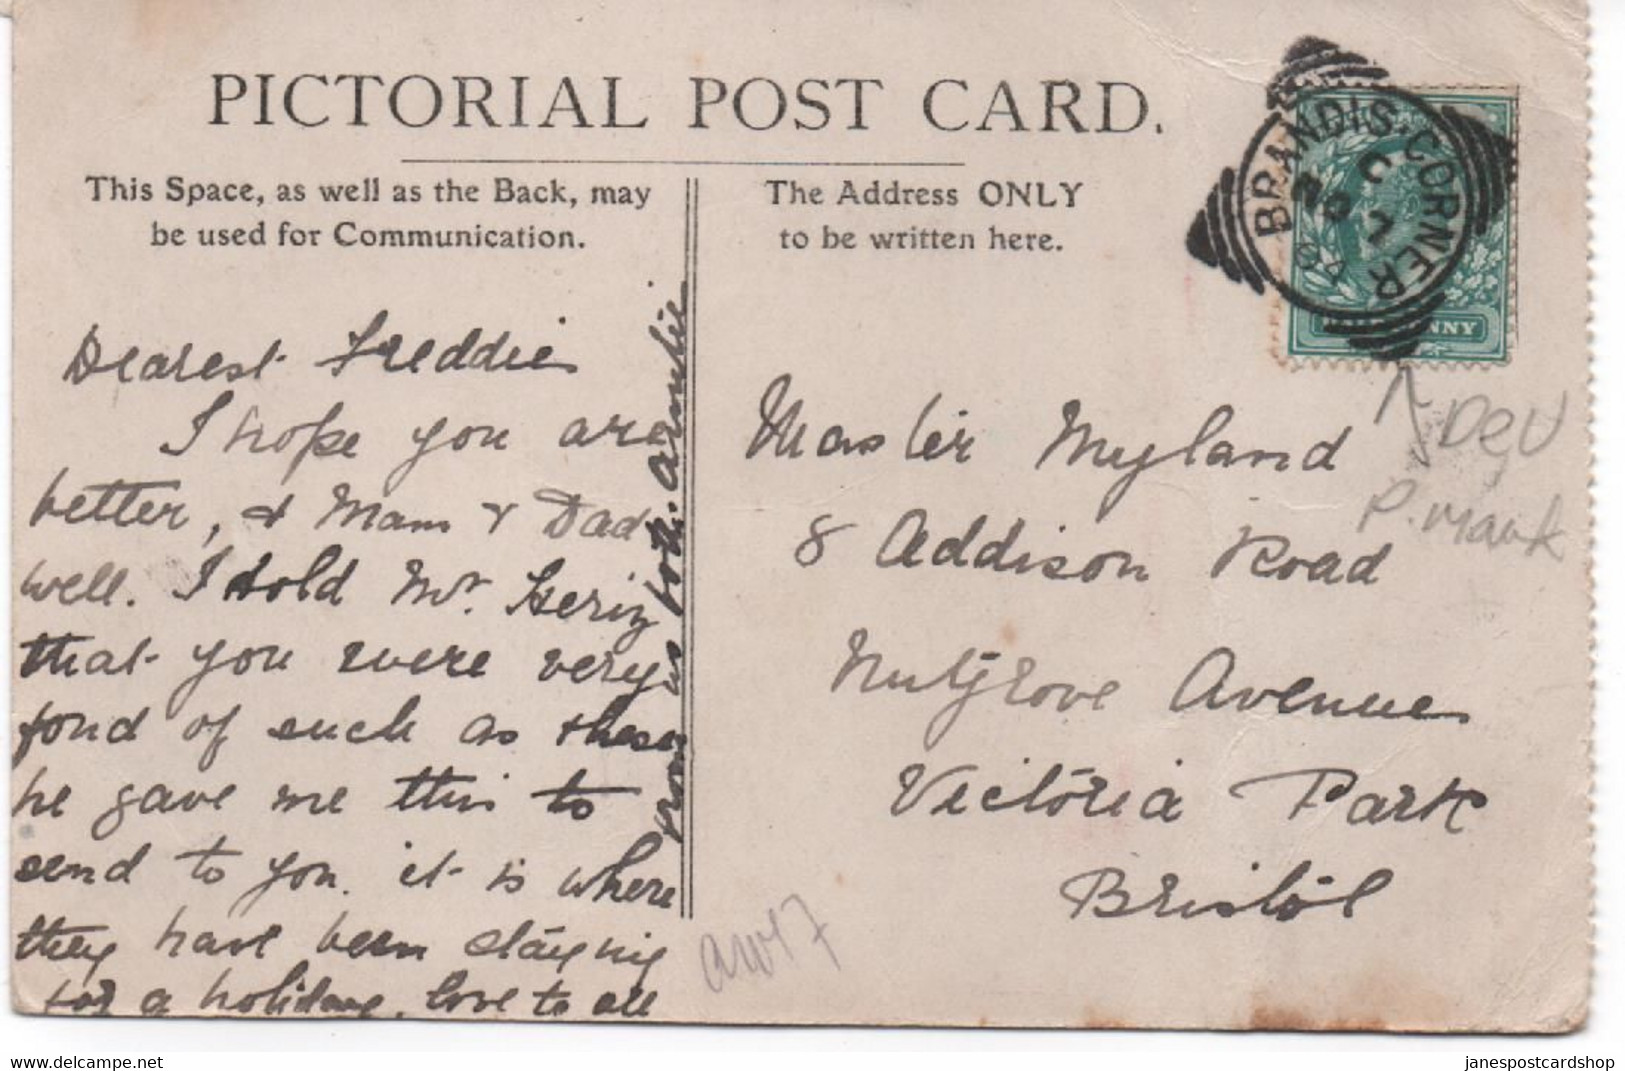 PICTORIAL POST CARD.
This Space, as well as the Back, may
be used for Communication.
The Address ONLY
to be written here.
Dearest Freddie
I hope you are
better, & Mam & Dad
well. I told Mr.
that you were very
fond of such as these
he gave me this to
send to you. it is where
they have been staying
for a holiday. love to all
from us both. Auntie
Master Myland
8 Addison Road
Nutgrove Avenue
Victoria Park
Bristol
BRANDIS·CORNER
C
NO 7
04
HALFPENNY
DEV
P. Mark
send-delcampe.net
janespostcardshop